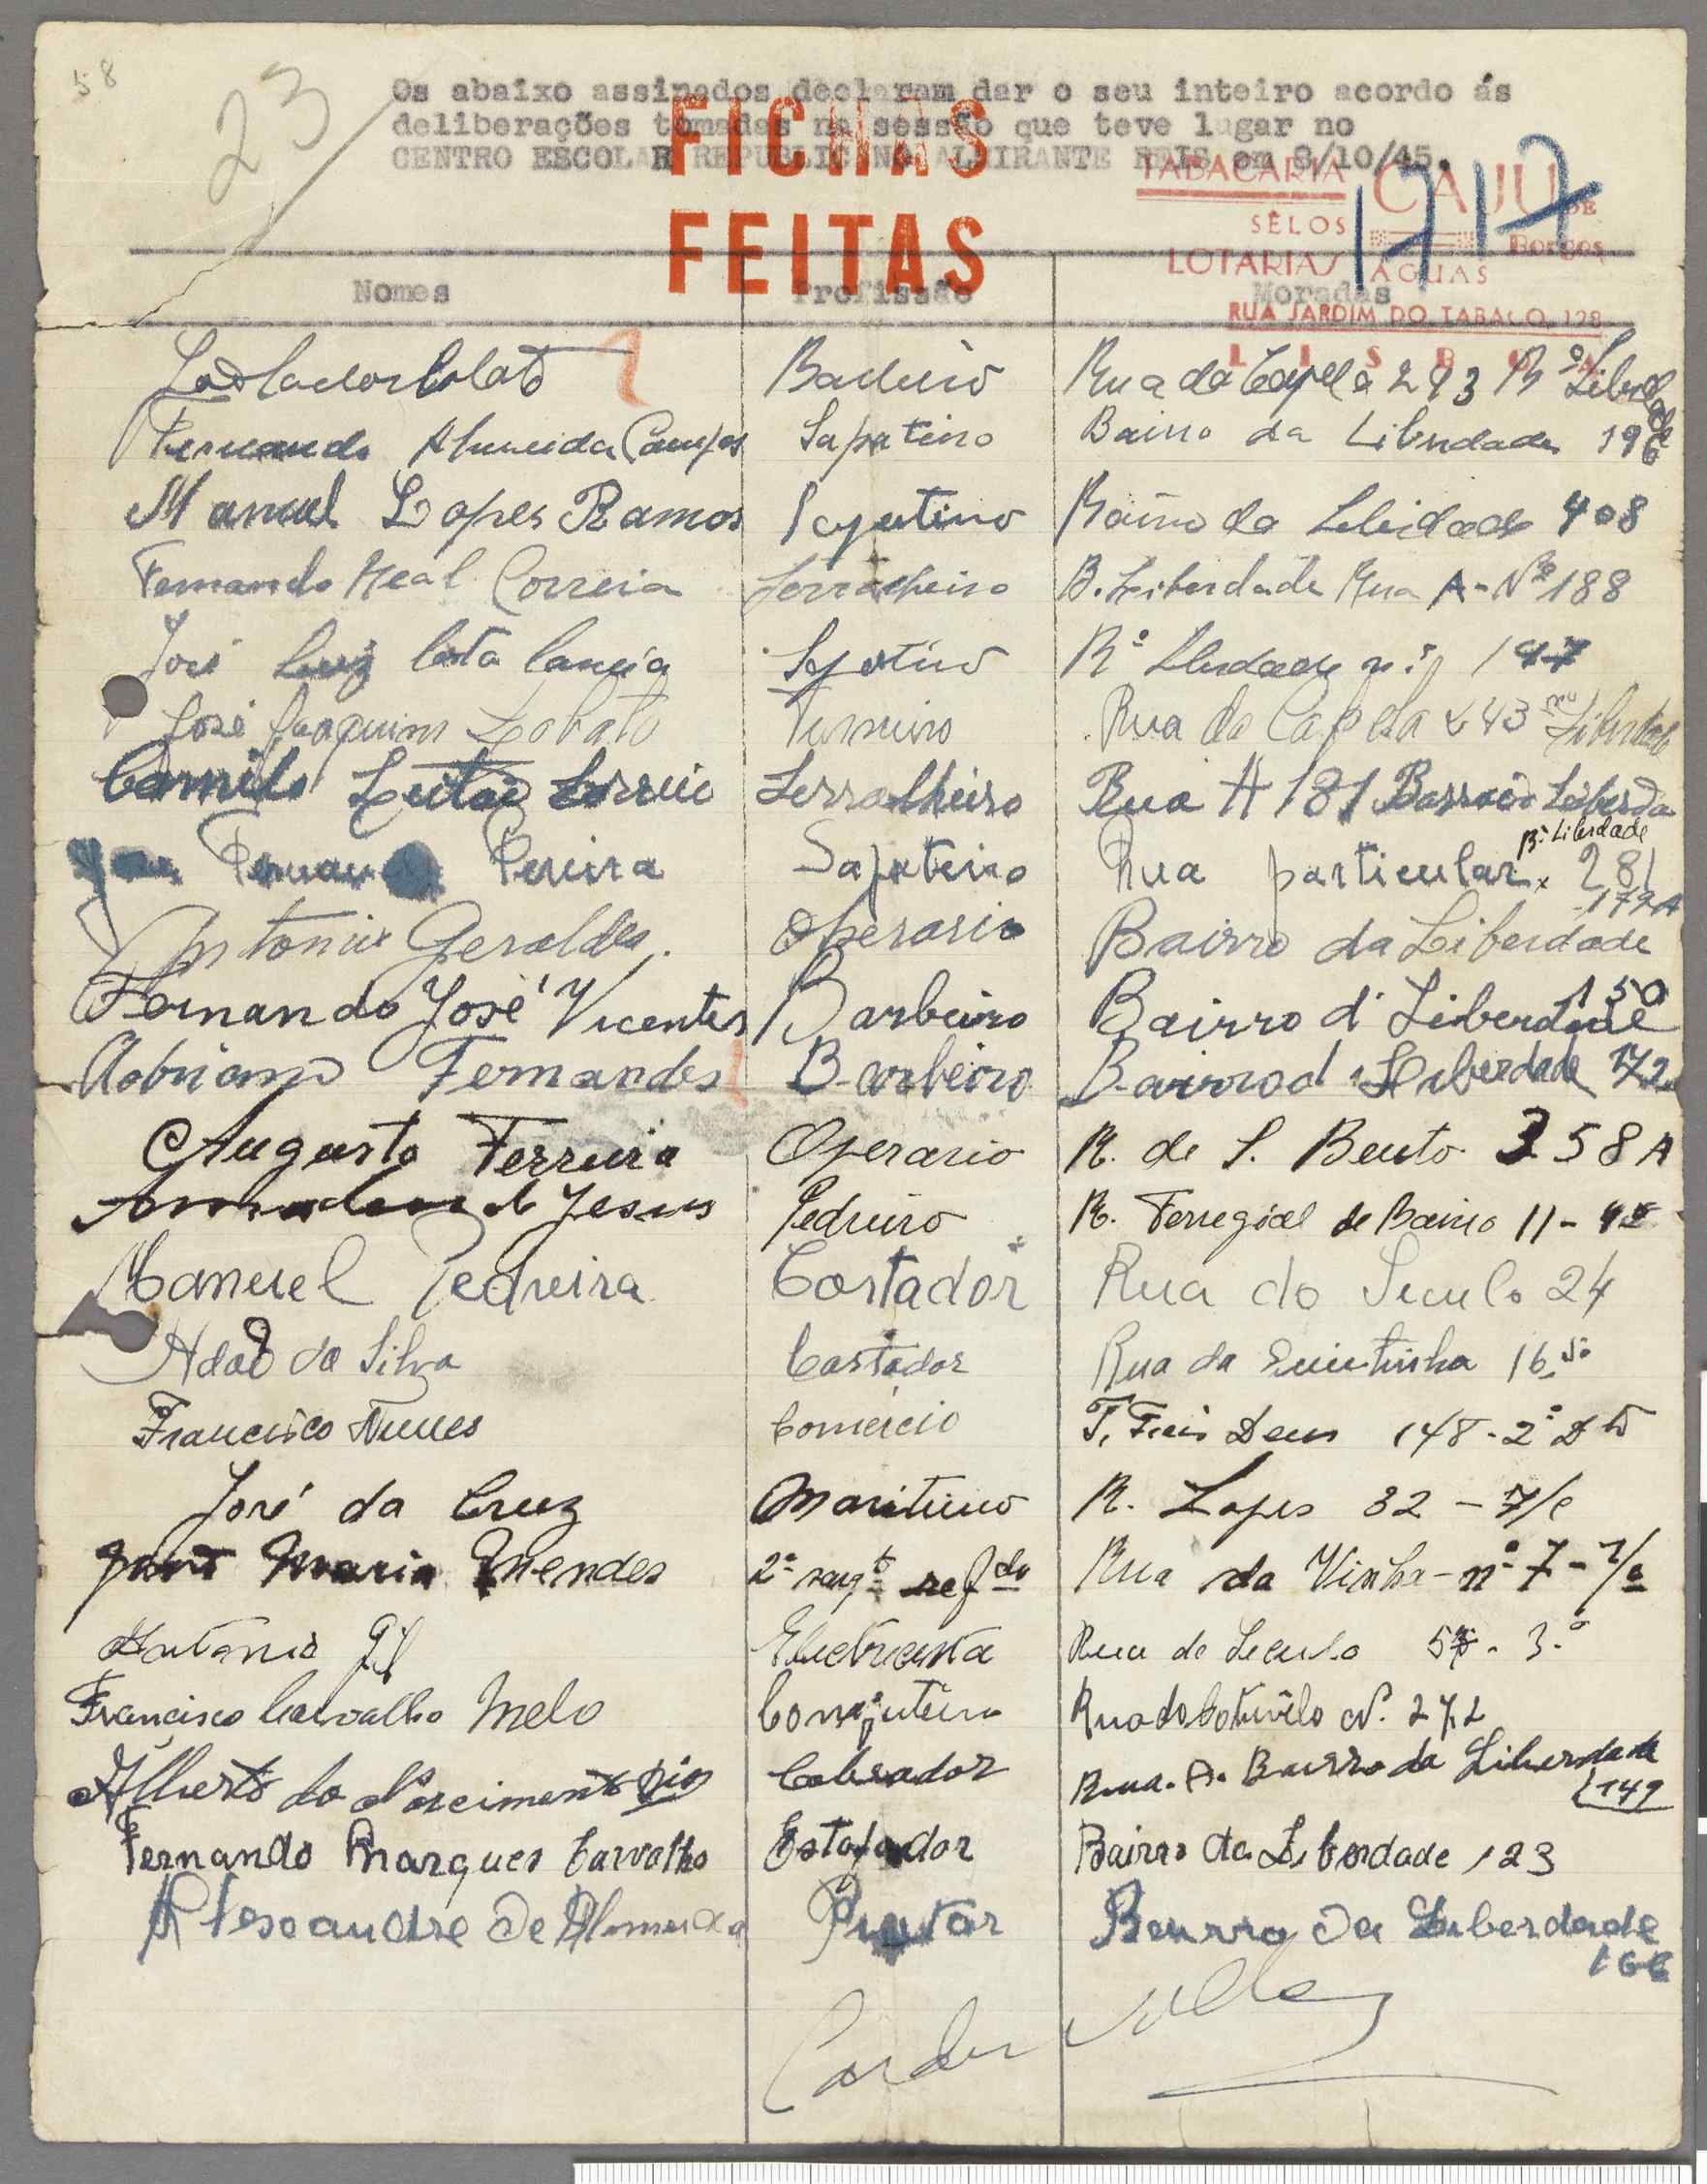 58
23
Os abaixo assinados declaram dar o seu inteiro acordo ás
deliberações tomadas na sessão que teve lugar no
CENTRO ESCOLAR REPUBLICANO ALMIRANTE REIS em 8/10/45.
FICHAS
FEITAS
TABACARIA CAJU DE
SÊLOS Borges
LOTARIAS AGUAS
RUA JARDIM DO TABACO, 128
LISBOA
1717
Nomes Profissão Moradas
Rua da Capela 293 Bº Liberdade
Fernando Almeida Campos Sapateiro Bairro da Liberdade 196
Manuel Lopes Ramos Sapateiro Bairro da Liberdade 408
Fernando Leal Correia Serralheiro B. Liberdade Rua A-Nº 188
José Luiz Sapateiro Bº Liberdade nº 147
José Joaquim Lobato Rua da Capela 243 Liberdade
Camilo Leitão Correia Serralheiro Rua A 181 Barraio Liberda
Fernando Pereira Sapateiro Rua particular Bº Liberdade 281
Antonio Geraldes Operario Bairro da Liberdade 172A
Fernando José Vicentes Barbeiro Bairro d' Liberdade 150
Adriano Fernandes Barbeiro Bairro d' Liberdade 172
Augusto Ferreira Operario R. de S. Bento 358A
Amadeu de Jesus Pedreiro R. Ferregial de Baixo 11-4º
Manuel Pedreira Cortador Rua do Seculo 24
Adão da Silva Cortador Rua da Quintinha 16
Francisco Nunes Comércio T. Fieis Deus 148-2º Dto
José da Cruz Maritimo R. Lopes 32 - r/c
José Maria Mendes 2º sargto refdo Rua da Vinha-nº 7-r/c
Antonio Gil Electricista Rua do Seculo 3.º
Francisco Carvalho Melo Carpinteiro N. 272
Alberto do Nascimento Cobrador Rua. A. Bairro da Liberdade 149
Fernando Marques Carvalho Estofador Bairro da Liberdade 123
Alexandre de Almeida Pintor Bairro da Liberdade 166